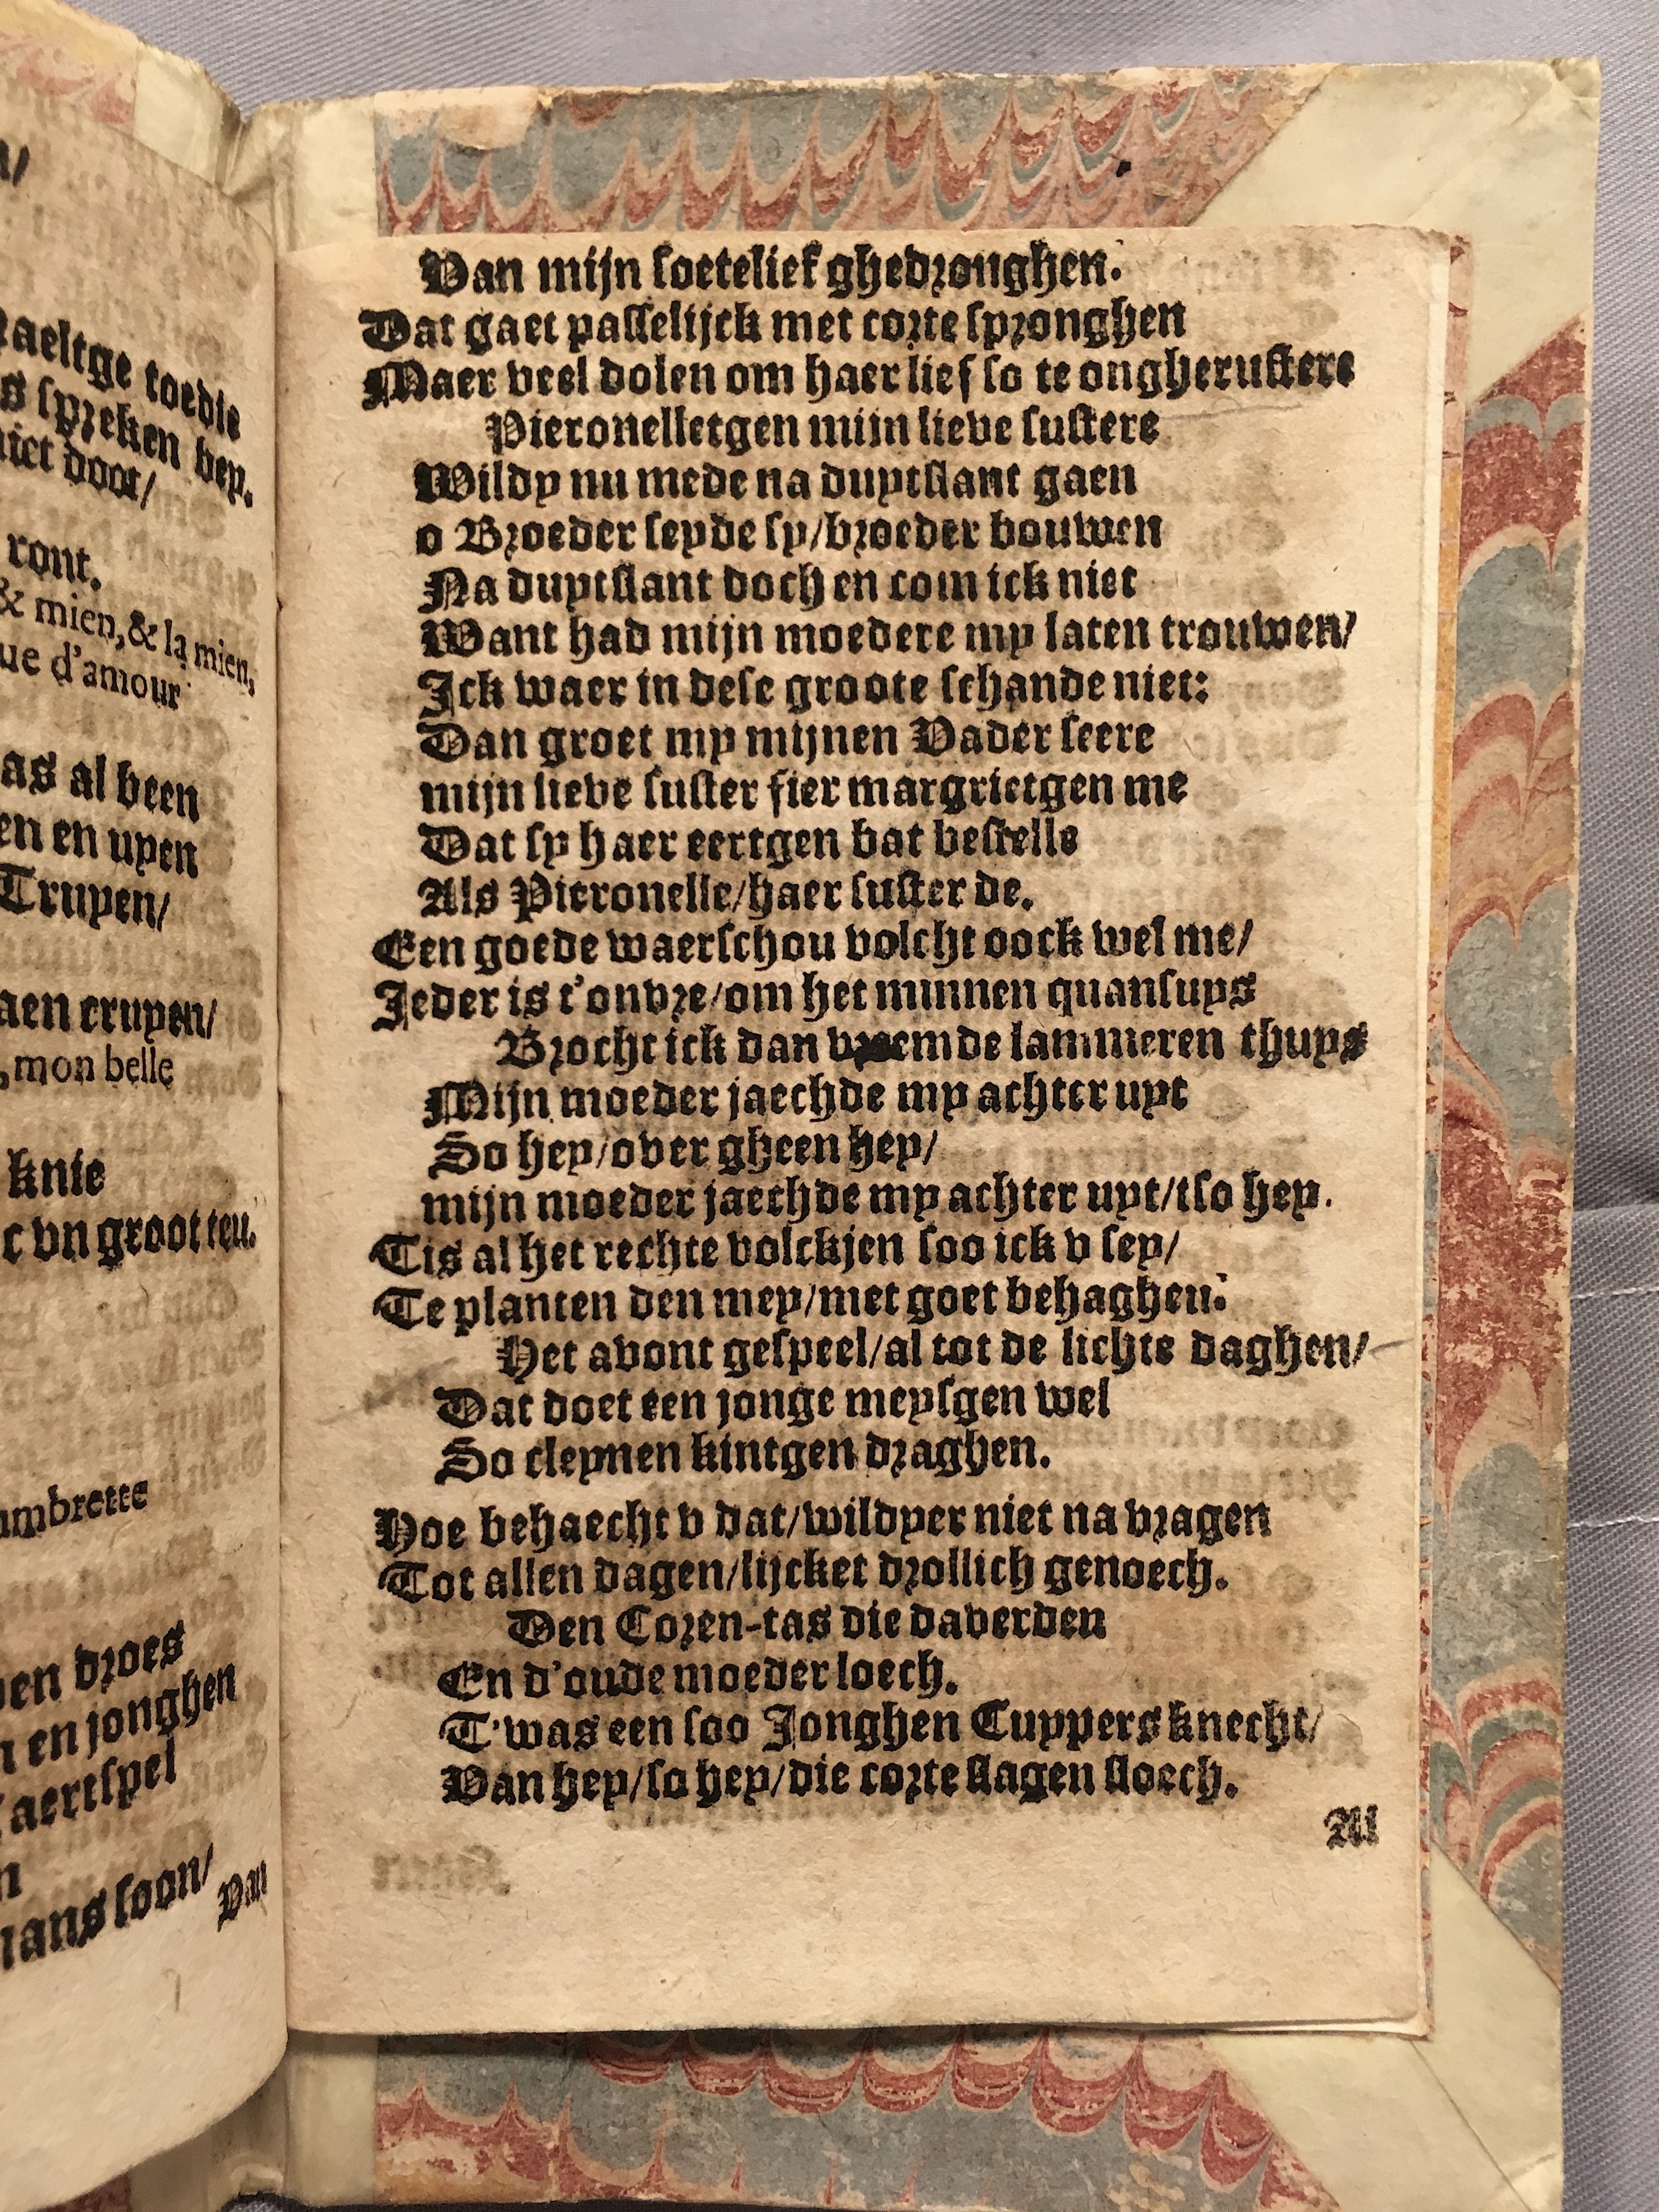 n/
raeltge toedie
s spreken bey.
niet doot/
ront.
& mien, & la mien,
ue d'amour
as al been
en en uyen
Truyen/
aen cruyen/
, mon belle
knie
c vn groot teu.
ambrette
en droes
n en jonghen
aertspel
n
ians soon/
Van
Van mijn soetelief ghedronghen.
Dat gaet passelijck met corte spronghen
Maer veel dolen om haer lief so te ongherustere
Pieronelletgen mijn lieve sustere
Wildy nu mede na duytslant gaen
o Broeder seyde sy/broeder bouwen
Na duytslant doch en com ick niet
Want had mijn moedere my laten trouwen/
Ick waer in dese groote schande niet:
Dan groet my mijnen Vader seere
mijn lieve suster fier margrietgen me
Dat sy haer eertgen bat bestelle
Als Pieronelle/haer suster de.
Een goede waerschou volcht oock wel me/
Ieder is t'onvre/om het minnen quansuys
Brocht ick dan vreemde lammeren thuys
Mijn moeder jaechde my achter uyt
So hey/over gheen hey/
mijn moeder jaechde my achter uyt/tso hey.
Tis al het rechte volckjen soo ick v sey/
Te planten den mey/met goet behaghen:
Het avont gespeel/al tot de lichte daghen/
Dat doet een jonge meysgen wel
So cleynen kintgen draghen.
Hoe behaecht v dat/wildyer niet na vragen
Tot allen dagen/lijcket drollich genoech.
Den Coren-tas die daverden
En d'oude moeder loech.
T'was een soo Jonghen Cuypers knecht/
Van hey/so hey/die corte slagen sloech.
Al